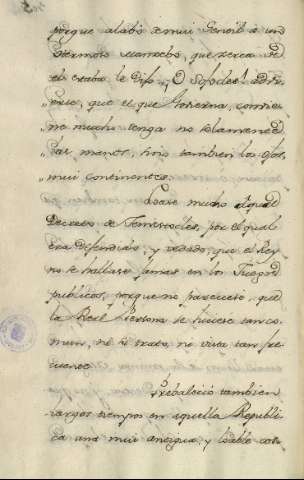 porque alabó a mui Gentil a un
Hermoso Mancebo, que zerca de
el estaba le dijo, O Sofocles! advi-
erte, que el que Govierna, convie-
ne mucho tenga no solamente
" las manos, sino tambien los ojos
" mui continentes.
Loase mucho aquel
Decreto de Temistocles, por el qual
era defendido, y vedado, que el Rey
no se hallase jamas en los Juegos
publicos, porque no pareciese, que
la Real Persona se huciese tan co-
mun, ni su trato, ni vista tan fre-
cuente
Prebaleció tambien
largos tiempos en aquella Republi-
ca una mui antigua, y loable cos-